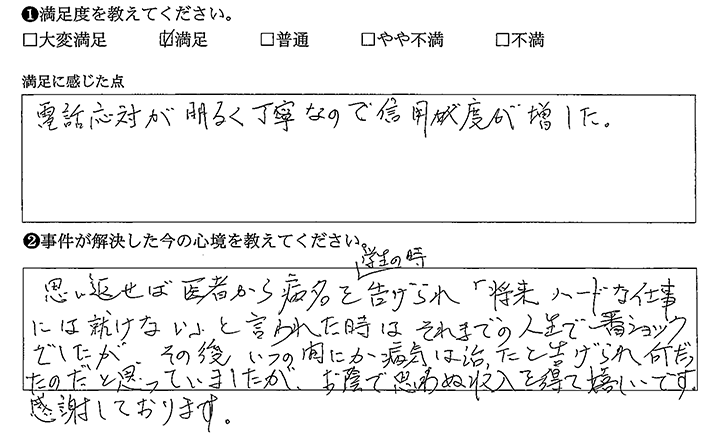 ❶満足度を教えてください。
□大変満足 ☑満足 □普通 □やや不満 □不満
満足に感じた点
電話応対が明るく丁寧なので信用度が増した。
❷事件が解決した今の心境を教えてください。
学生の時
思い返せば医者から病名を告げられ「将来ハードな仕事
には就けない」と言われた時はそれまでの人生で一番ショック
でしたが、その後いつの間にか病気は治ったと告げられ何だっ
たのだと思っていましたが、お蔭で思わぬ収入を得て嬉しいです。
感謝しております。